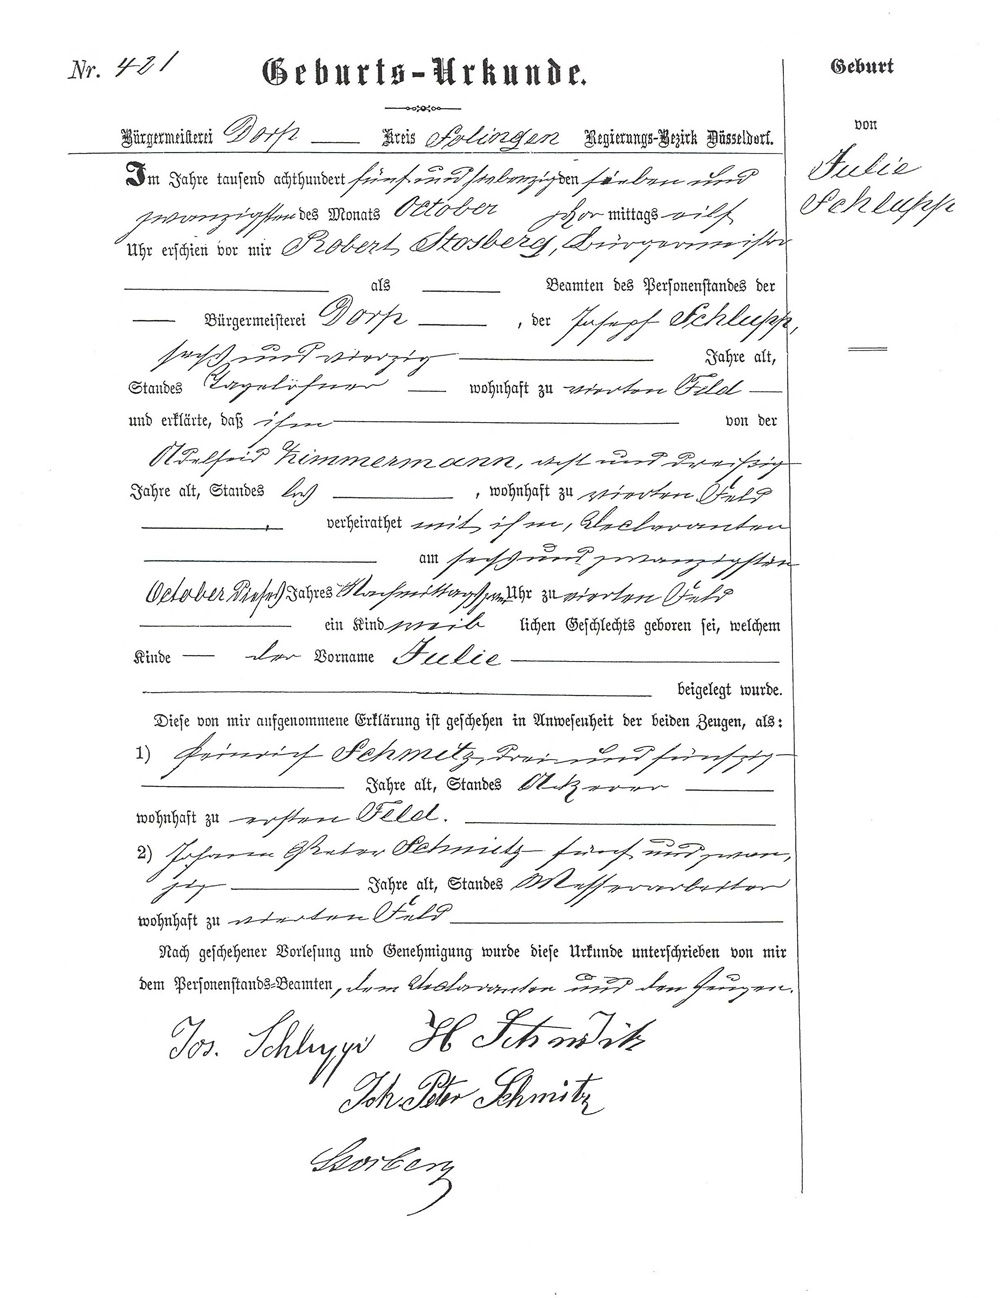 Nr. 421
Geburts-Urkunde.
Geburt
von
Julie
Schlupp
Bürgermeisterei Dorp Kreis Solingen Regierungs-Bezirk Düsseldorf.
Im Jahre tausend achthundert fünf und siebenzig den sieben und
zwanzigsten des Monats October Vor mittags eilf
Uhr erschien vor mir Robert Stosberg, Bürgermeister
als Beamten des Personenstandes der
Bürgermeisterei Dorp, der Joseph Schlupp,
sechs und vierzig Jahre alt,
Standes Tagelöhner wohnhaft zu vierten Feld
und erklärte, daß ihm von der
Adelheid Zimmermann, acht und dreißig
Jahre alt, Standes los, wohnhaft zu vierten Feld
, verheirathet mit ihm, Declaranten
am sechs und zwanzigsten
October dieses Jahres Nachmittags Uhr zu vierten Feld
ein Kind weib lichen Geschlechts geboren sei, welchem
Kinde der Vorname Julie
beigelegt wurde.
Diese von mir aufgenommene Erklärung ist geschehen in Anwesenheit der beiden Zeugen, als:
1) Heinrich Schmitz, drei und fünfzig
Jahre alt, Standes Ackerer
wohnhaft zu ersten Feld.
2) Johann Peter Schmitz fünf und zwan,
zig Jahre alt, Standes Messerarbeiter
wohnhaft zu vierten Feld
Nach geschehener Vorlesung und Genehmigung wurde diese Urkunde unterschrieben von mir
dem Personenstands-Beamten, dem Declaranten und den Zeugen.
Jos. Schlupp H Schmitz
Joh. Peter Schmitz
Stosberg